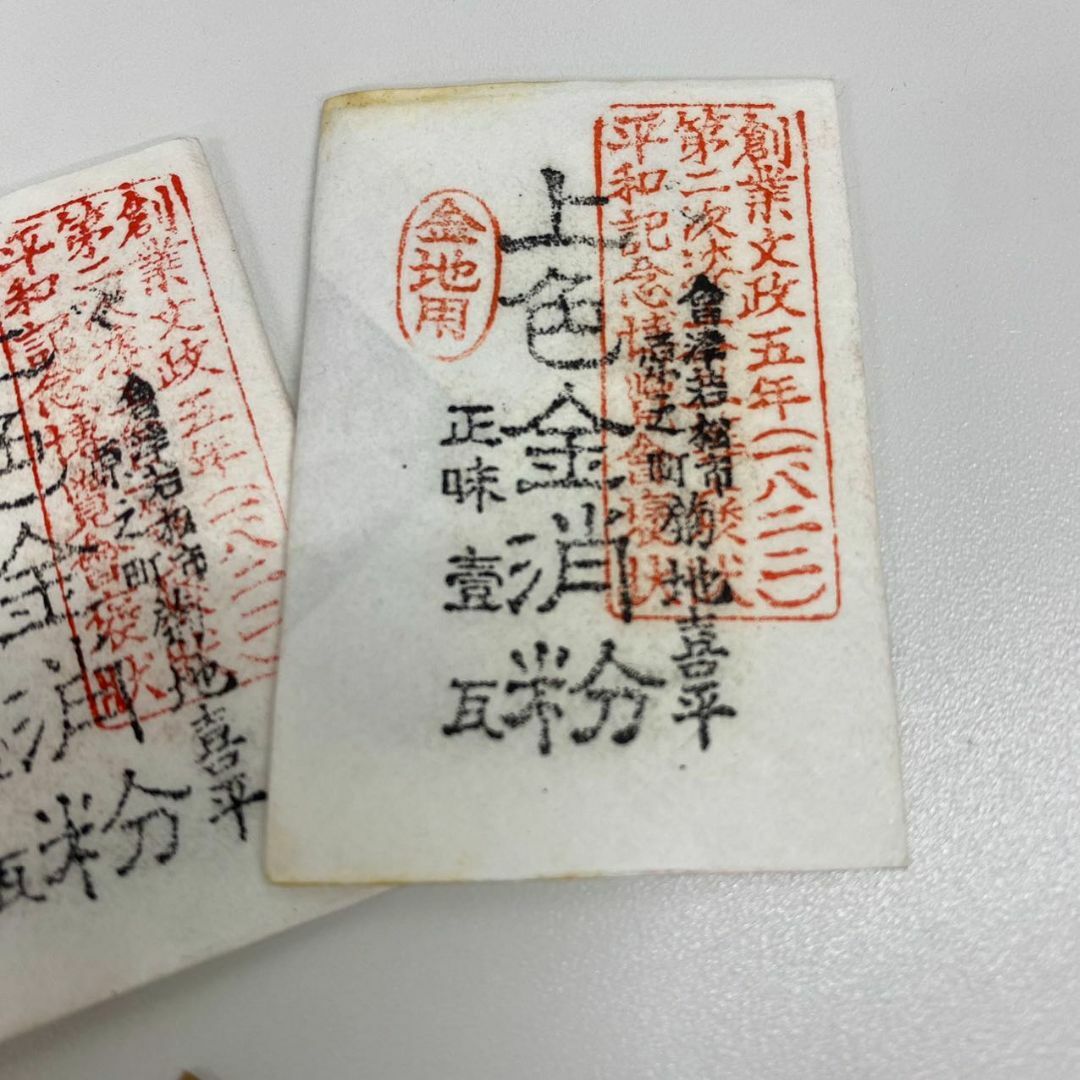 創業文政五年(一八二二)
第二次
平和記念 會褒状
會津若松市
原之町
地喜平
上色金消粉
正味 壹瓦
金地用
創業文政五年(一八二二)
第二
平和記念 覽會褒状
會津若松市
原之町
地喜平
色金消粉
瓦